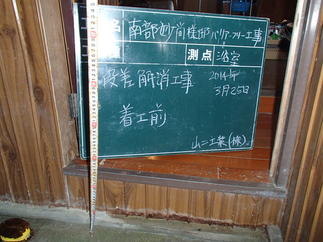 名 南部妙尚様邸バリアフリー工事
測点 浴室
段差解消工事 2014年
3月25日
着工前
山二工業(株)